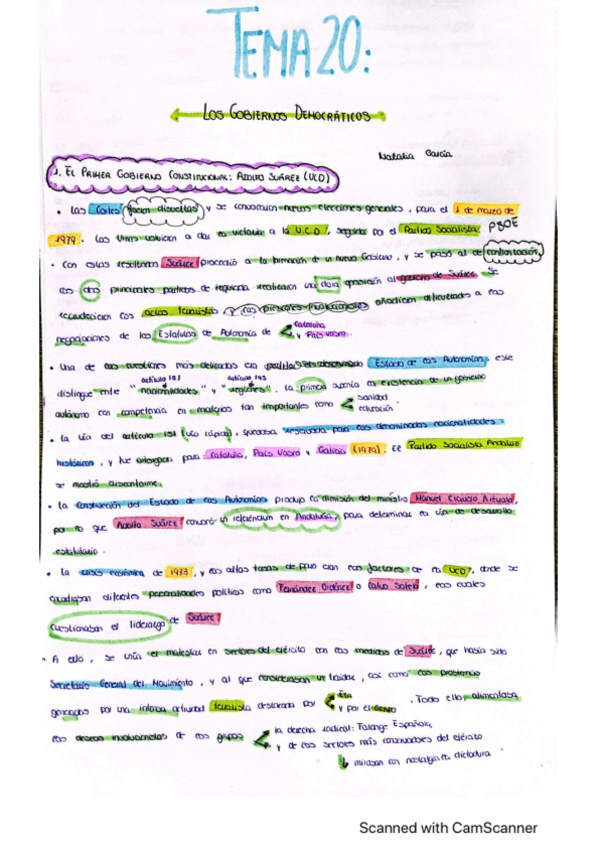 TEMA 20:
LOS GOBIERNOS DEMOCRÁTICOS
Natalia García
1. EL PRIMER GOBIERNO CONSTITUCIONAL: ADOLFO SUÁREZ (UCD)
• Las Cortes fueron disueltas y se convocaron nuevas elecciones generales, para el 1 de marzo de
1979. Las urnas volvieron a dar la victoria a la U.C.D, seguida por el Partido Socialista PSOE
• Con estos resultados Suárez procedió a la formación de un nuevo Gobierno, y se pasó al de confrontación,
los dos principales partidos de izquierda realizaron una dura oposición al gobierno de Suárez. Se
recrudecieron los actos terroristas y las presiones involucionistas añadieron dificultades a las
negociaciones de los Estatutos de Autonomía de Cataluña
y País Vasco.
• Una de las cuestiones más delicadas era Estado de las Autonomías: este
artículo 151 artículo 143
distingue entre "nacionalidades" y "regiones". La primera suponía la existencia de un gobierno
autónomo con competencia en materias tan importantes como sanidad
educación.
• La vía del artículo 151 (vía rápida), quedaba reservada para las denominadas nacionalidades
históricas, y fue otorgada para Cataluña, País Vasco y Galicia (1979). El Partido Socialista Andaluz
se mostró disconforme.
• La construcción del Estado de las Autonomías produjo la dimisión del ministro Manuel Clavero Arévalo,
por lo que Adolfo Suárez convocó un referéndum en Andalucía, para determinar la vía de desarrollo
estatutario.
• La crisis económica de 1973, y las altas tasas de paro con los factores de la UCD, donde se
diferentes personalidades políticas como Fernández Ordóñez o Calvo Sotelo, los cuales
cuestionaban el liderazgo de Suárez
• A ello, se unía el malestar en sectores del ejército con las medidas de Suárez, que había sido
Secretario General del Movimiento, y al que consideraban un traidor, así como los problemas
generados por una intensa actividad terrorista desatada por ETA
y por el GRAPO. Todo ello, alimentaba
los deseos involucionistas de los grupos la derecha radical: Falange Española
y de los sectores más conservadores del ejército
miraban con nostalgia la dictadura
Scanned with CamScanner